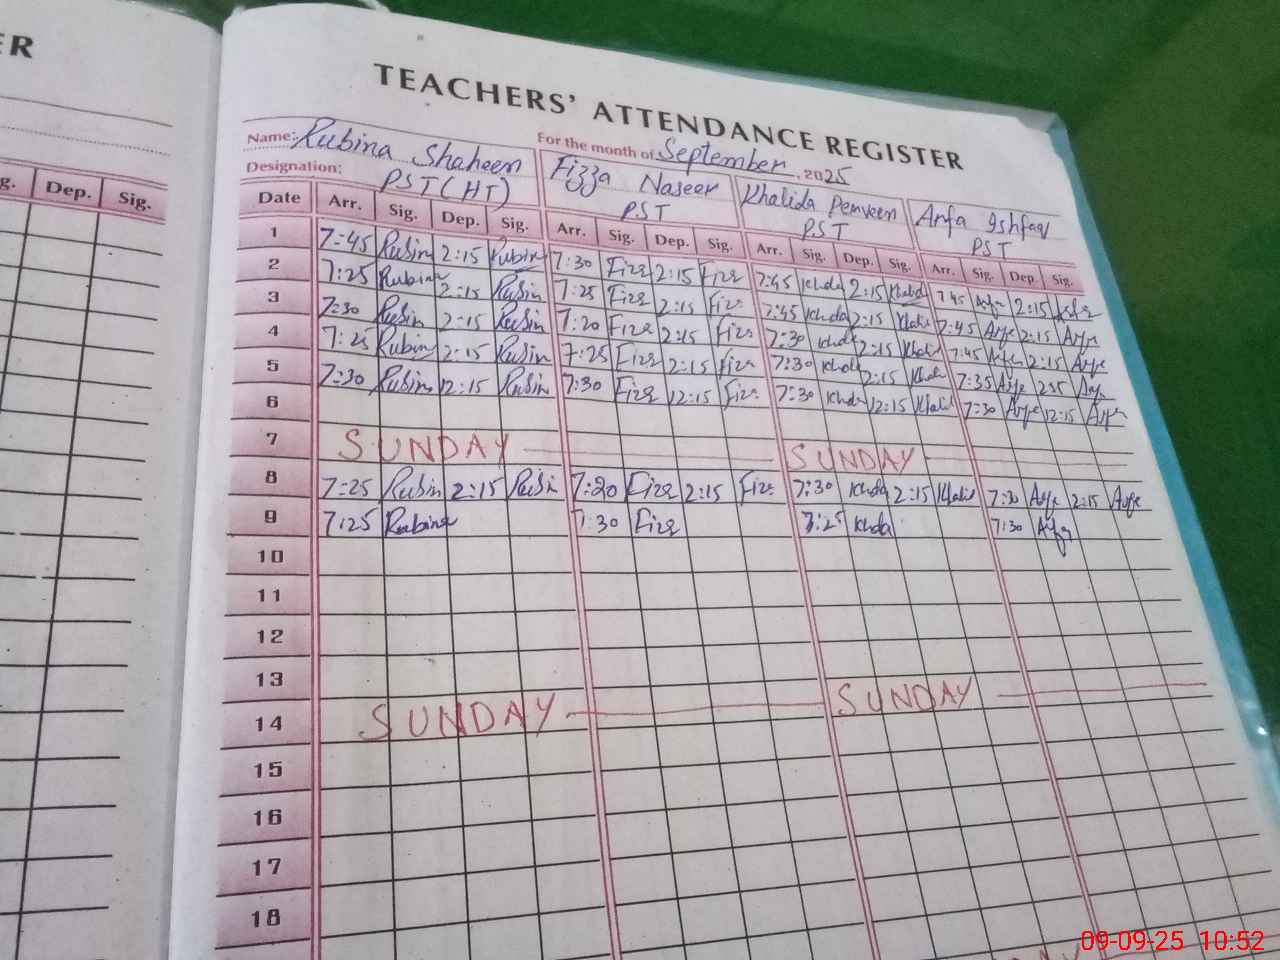 ER
g. Dep. Sig.
TEACHERS' ATTENDANCE REGISTER
Name: Rubina Shaheen For the month of September, 2025
Designation: PST (HT) Fizza Naseer PST Khalida Perveen PST Arfa Ishfaq PST
Date Arr. Sig. Dep. Sig. Arr. Sig. Dep. Sig. Arr. Sig. Dep. Sig. Arr. Sig. Dep. Sig.
1 7:45 Rubin 2:15 Rubin 7:30 Fizz 2:15 Fizz 7:45 Khda 2:15 Khalid 7:45 Arfa 2:15 Arfa
2 7:25 Rubina 2:15 Rubin 7:25 Fizz 2:15 Fizz 7:45 Khda 2:15 Khali 7:45 Arfa 2:15 Arfa
3 7:30 Rubin 2:15 Rubin 7:20 Fizz 2:15 Fizz 7:30 Khda 2:15 Khali 7:45 Arfa 2:15 Arfa
4 7:25 Rubin 2:15 Rubin 7:25 Fizz 2:15 Fizz 7:30 Khda 2:15 Khali 7:35 Arfa 2:15 Arfa
5 7:30 Rubin 12:15 Rubin 7:30 Fizz 12:15 Fizz 7:30 Khda 12:15 Khalid 7:30 Arfa 12:15 Arfa
6
7 SUNDAY SUNDAY
8 7:25 Rubin 2:15 Rubin 7:20 Fizz 2:15 Fizz 7:30 Khda 2:15 Khalid 2:15 Arfa
9 7:25 Rubina 7:30 Fizz 7:25 Khda 7:30 Arfa
10
11
12
13
14 SUNDAY SUNDAY
15
16
17
18
09-09-25 10:52